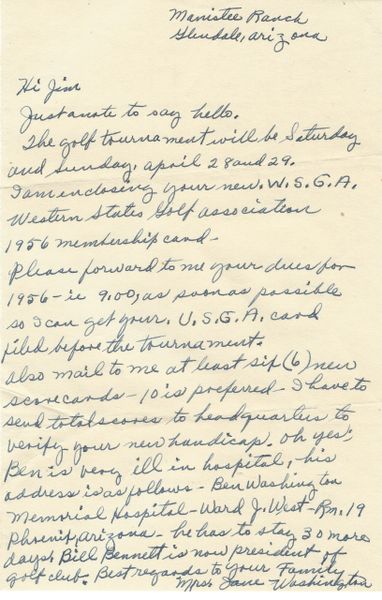 Manistee Ranch
Glendale, Arizona
Hi Jim
Just a note to say hello.
The golf tournament will be Saturday
and Sunday, April 28 and 29.
I am enclosing your new. W.S.G.A.
Western States Golf association
1956 membership card-
Please forward to me your dues for
1956-ie 9.00, as soon as possible
so I can get your, U.S.G.A. card
filed before the tournament.
also mail to me at least six (6) new
scorecards - 10 is preferred - I have to
send total scores to headquarters to
verify your new handicap. Oh yes,
Ben is very ill in hospital, his
address is as follows - Ben Washington
Memorial Hospital - Ward J. West - Rm. 19
Phoenix, Arizona - he has to stay 30 more
days. Bill Bennett is now president of
golf club. Best regards to your Family
Mrs. Jane Washington